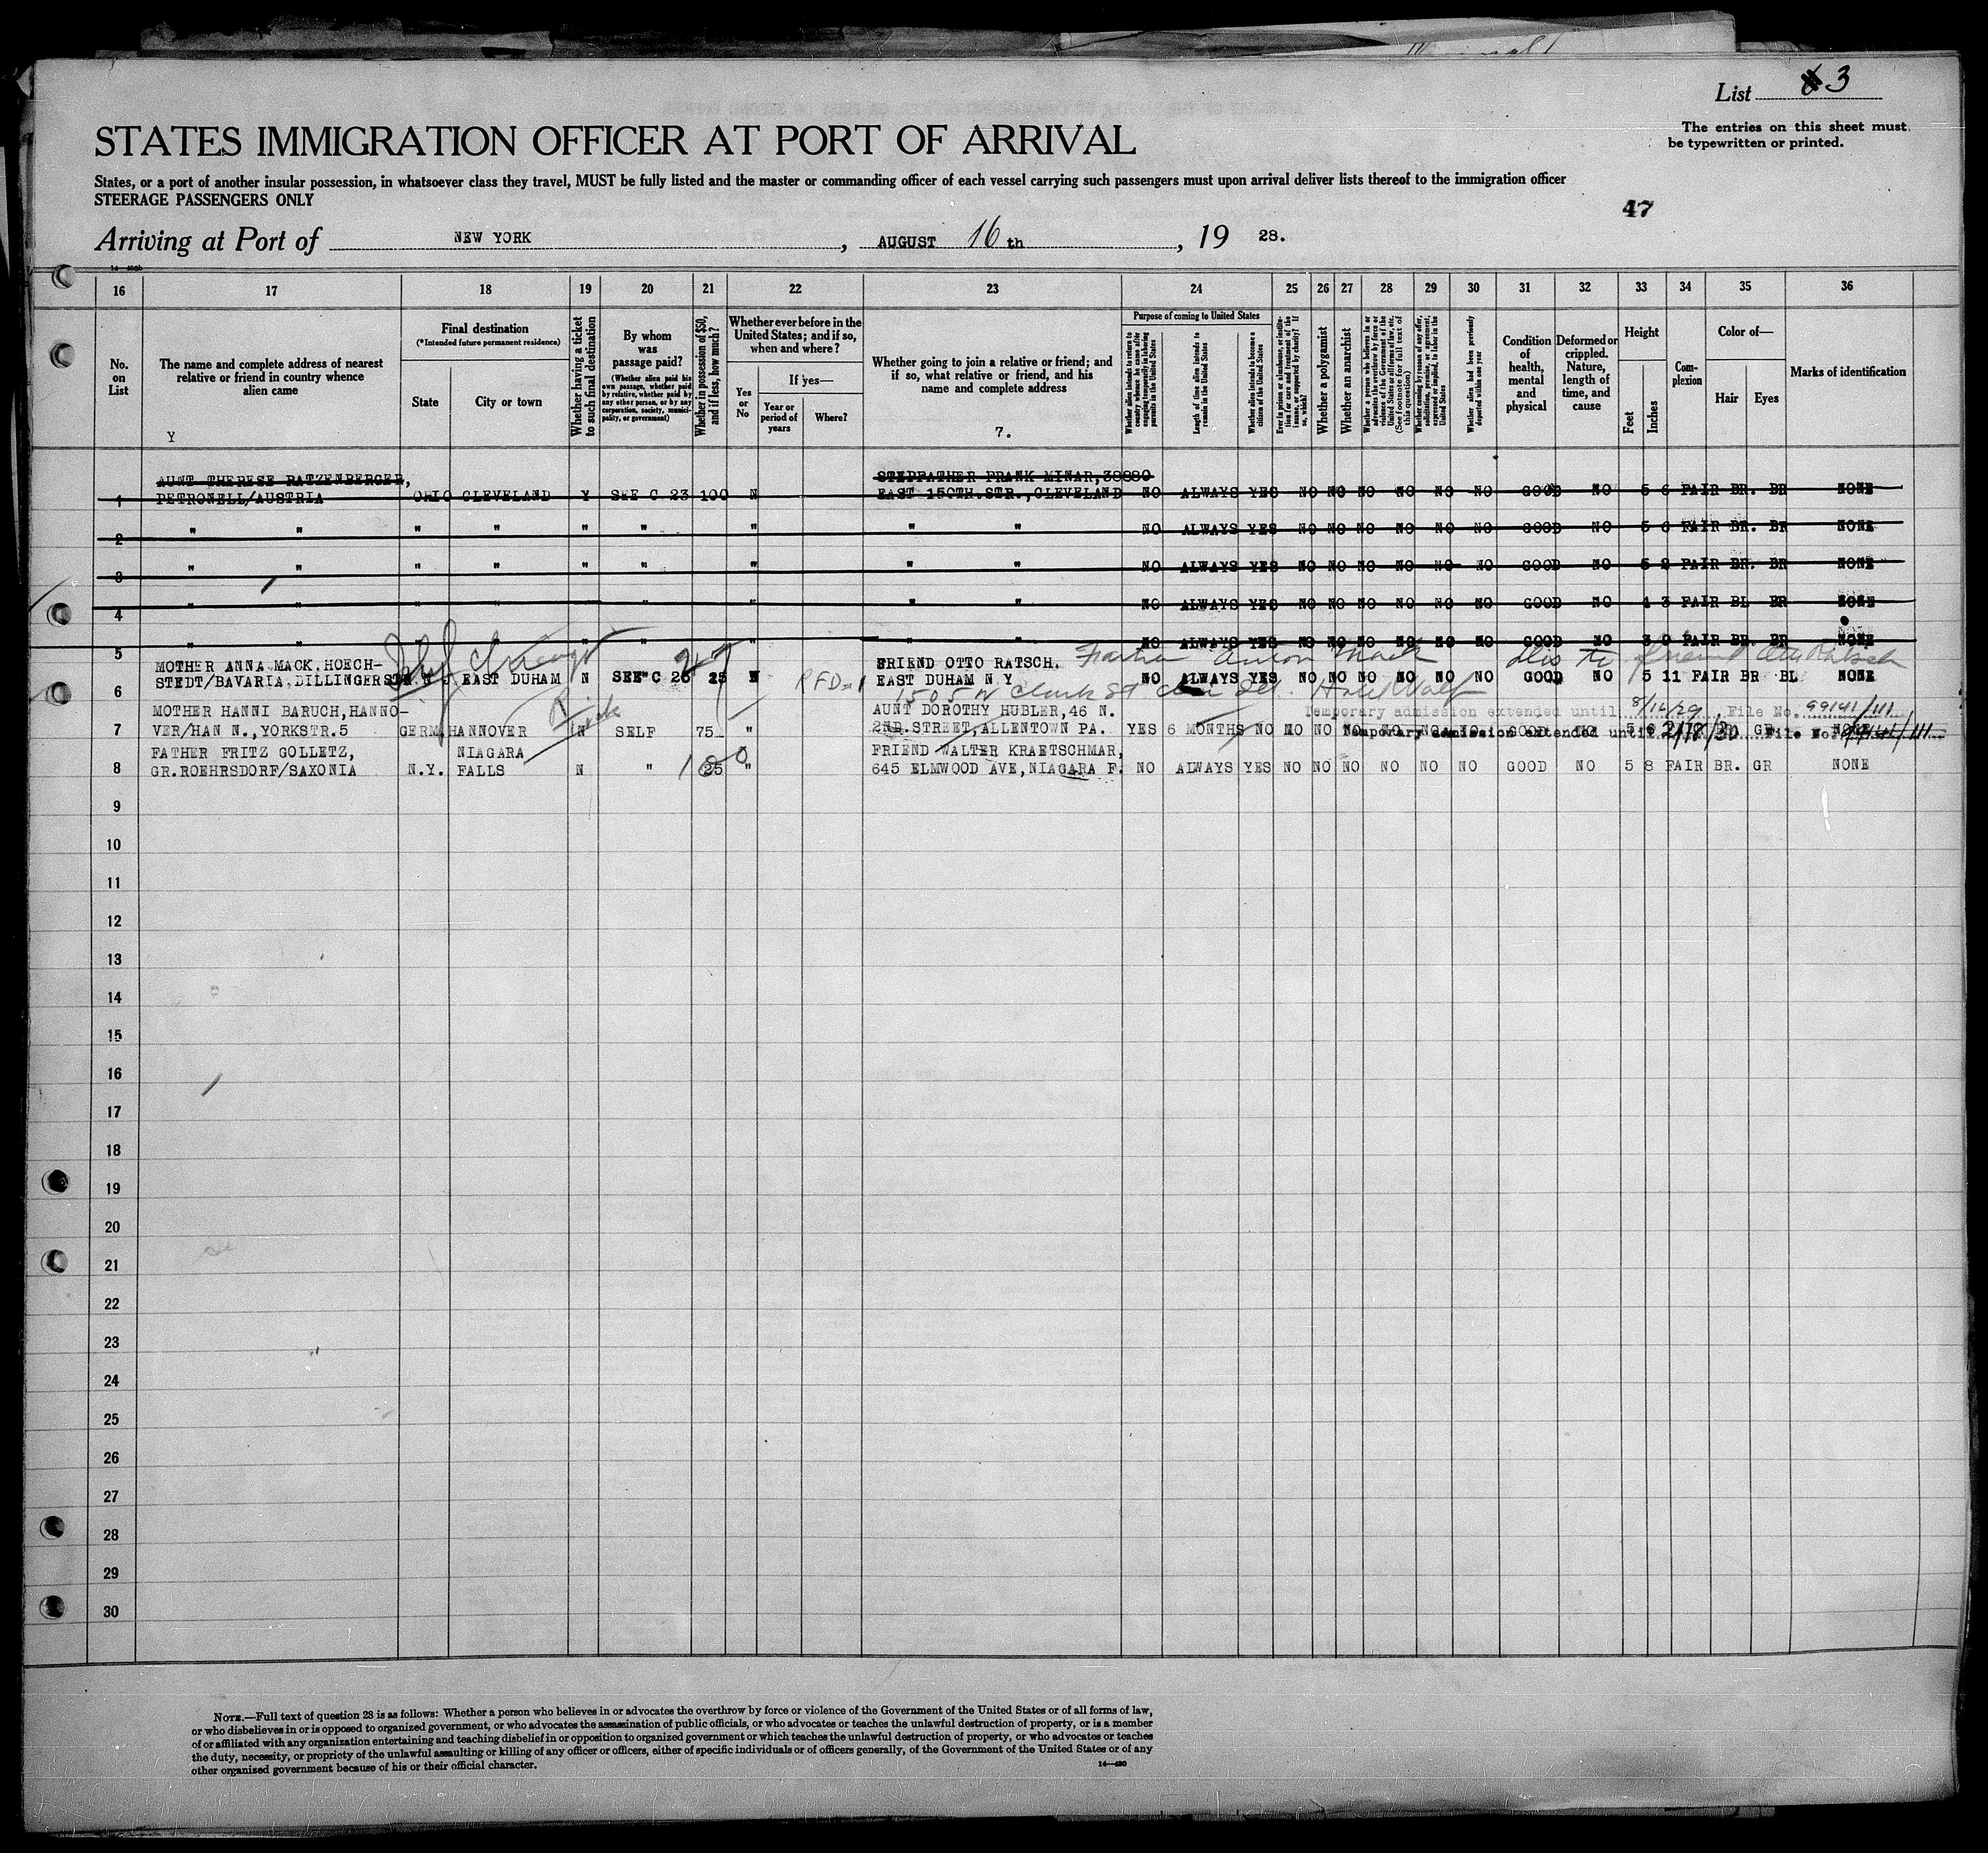 List 3
The entries on this sheet must
be typewritten or printed.
STATES IMMIGRATION OFFICER AT PORT OF ARRIVAL
States, or a port of another insular possession, in whatsoever class they travel, MUST be fully listed and the master or commanding officer of each vessel carrying such passengers must upon arrival deliver lists thereof to the immigration officer
STEERAGE PASSENGERS ONLY
47
Arriving at Port of NEW YORK, AUGUST 16 th, 19 28.
16 17 18 19 20 21 22 23 24 25 26 27 28 29 30 31 32 33 34 35 36
No. on List
The name and complete address of nearest
relative or friend in country whence
alien came
Y
Final destination
(*Intended future permanent residence)
State
City or town
Whether having a ticket
to such final destination
By whom
was
passage paid?
(Whether alien paid his
own passage, whether paid
by relative, whether paid by
any other person, or by any
corporation, society, munici-
pality, or government)
Whether in possession of $50,
and if less, how much?
Whether ever before in the
United States; and if so,
when and where?
Yes
or
No
If yes—
Year or
period of
years
Where?
Whether going to join a relative or friend; and
if so, what relative or friend, and his
name and complete address
7.
Purpose of coming to United States
Whether alien intends to return to
country whence he came after
engaging temporarily in laboring
pursuits in the United States
Length of time alien intends to
remain in the United States
Whether alien intends to become a
citizen of the United States
Ever in prison or almshouse, or institu-
tion for care and treatment of the
insane, or supported by charity? If
so, which?
Whether a polygamist
Whether an anarchist
Whether a person who believes in or
advocates the overthrow by force or
violence of the Government of the
United States or all forms of law, etc.
(See footnote for full text of
this question)
Whether coming by reason of any offer,
solicitation, promise, or agreement,
expressed or implied, to labor in the
United States
Whether alien had been previously
deported within one year
Condition
of
health,
mental
and
physical
Deformed or
crippled.
Nature,
length of
time, and
cause
Height
Feet
Inches
Com-
plexion
Color of—
Hair
Eyes
Marks of identification
AUNT THERESE RATZENBERGER, STEPFATHER FRANK MINAR,38880
1 PETRONELL/AUSTRIA OHIO CLEVELAND Y SEE C 23 100 N EAST 150TH.STR.,CLEVELAND NO ALWAYS YES NO NO NO NO NO NO GOOD NO 5 6 FAIR BR. BR NONE
2 " " " " " " " " " NO ALWAYS YES NO NO NO NO NO NO GOOD NO 5 6 FAIR BR. BR NONE
3 " " " " " " " " " NO ALWAYS YES NO NO NO NO NO NO GOOD NO 5 2 FAIR BR. BR NONE
4 " " " " " " " " " NO ALWAYS YES NO NO NO NO NO NO GOOD NO 4 3 FAIR BL BR NONE
5 " " " " " " " " " NO ALWAYS YES NO NO NO NO NO NO GOOD NO 3 9 FAIR BR. BR NONE
MOTHER ANNA MACK.HOECH- FRIEND OTTO RATSCH. Father Anton Mack friend Otto Ratsch
6 STEDT/BAVARIA,DILLINGERSTR EAST DUHAM N SEE C 26 25 N RFD-1 EAST DUHAM N Y NO ALWAYS YES NO NO NO NO NO NO GOOD NO 5 11 FAIR BR BL NONE
1505 N Clark St Hotel Wolf
MOTHER HANNI BARUCH,HANNO- AUNT DOROTHY HUBLER,46 N. Temporary admission extended until 8/16/29 File No. 99141/111
7 VER/HAN N.,YORKSTR.5 GERM. HANNOVER N SELF 75 " 2ND.STREET,ALLENTOWN PA. YES 6 MONTHS NO NO NO NO Temporary admission extended until 2/18/30 File No.
FATHER FRITZ GOLLETZ, NIAGARA FRIEND WALTER KRAETSCHMAR,
8 GR.ROEHRSDORF/SAXONIA N.Y. FALLS N " 25 " 645 ELMWOOD AVE,NIAGARA F. NO ALWAYS YES NO NO NO NO NO NO GOOD NO 5 8 FAIR BR. GR NONE
9
10
11
12
13
14
15
16
17
18
19
20
21
22
23
24
25
26
27
28
29
30
NOTE.—Full text of question 28 is as follows: Whether a person who believes in or advocates the overthrow by force or violence of the Government of the United States or of all forms of law,
or who disbelieves in or is opposed to organized government, or who advocates the assassination of public officials, or who advocates or teaches the unlawful destruction of property, or is a member
of or affiliated with any organization entertaining and teaching disbelief in or opposition to organized government or which teaches the unlawful destruction of property, or who advocates or teaches
the duty, necessity, or propriety of the unlawful assaulting or killing of any officer or officers, either of specific individuals or of officers generally, of the Government of the United States or of any
other organized government because of his or their official character.
14—480